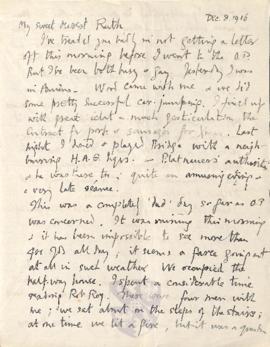 Dec. 8. 1916
My sweet dearest Ruth
I've treated you badly in not getting a letter
off this morning before I went to the O.P.
But I've been both busy & gay. Yesterday I was
in Amiens. Wood came with me & we did
some pretty successful car-jumping. I fixed up
with great what a much particulation the
contract for pork & sausages for Xmas. Last
night I dined & played Bridge with a neigh-
bouring H.A.G. hqrs.
he was here to; quite an amusing evening
& very late seance.
This was a completely 'dud' day so far as O.P.
was concerned. It was misting this morning
& it has been impossible to see more than
400 yds all day; it seems a farce going out
at all in such weather. We occupied the
half way house. I spent a considerable time
reading Rob Roy. There were four men with
me; we sat about on the steps of the stairs;
at one time we lit a fire, but it was a question